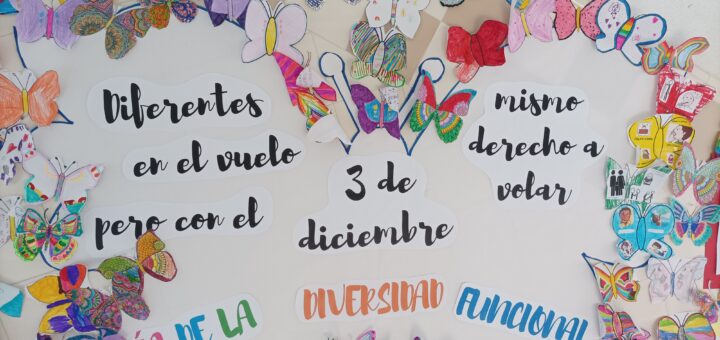 Diferentes
en el vuelo
pero con el
mismo
derecho a
volar
3 de
diciembre
DE LA DIVERSIDAD FUNCIONAL